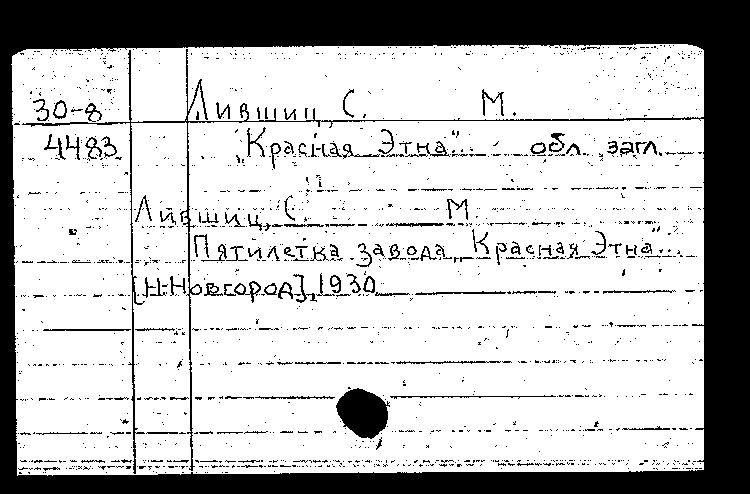 30-8 Лившиц, С. М.
4483 „Красная Этна"... обл. загл.
Лившиц, С. М
Пятилетка завода „Красная Этна"...
[Н-Новгород], 1930